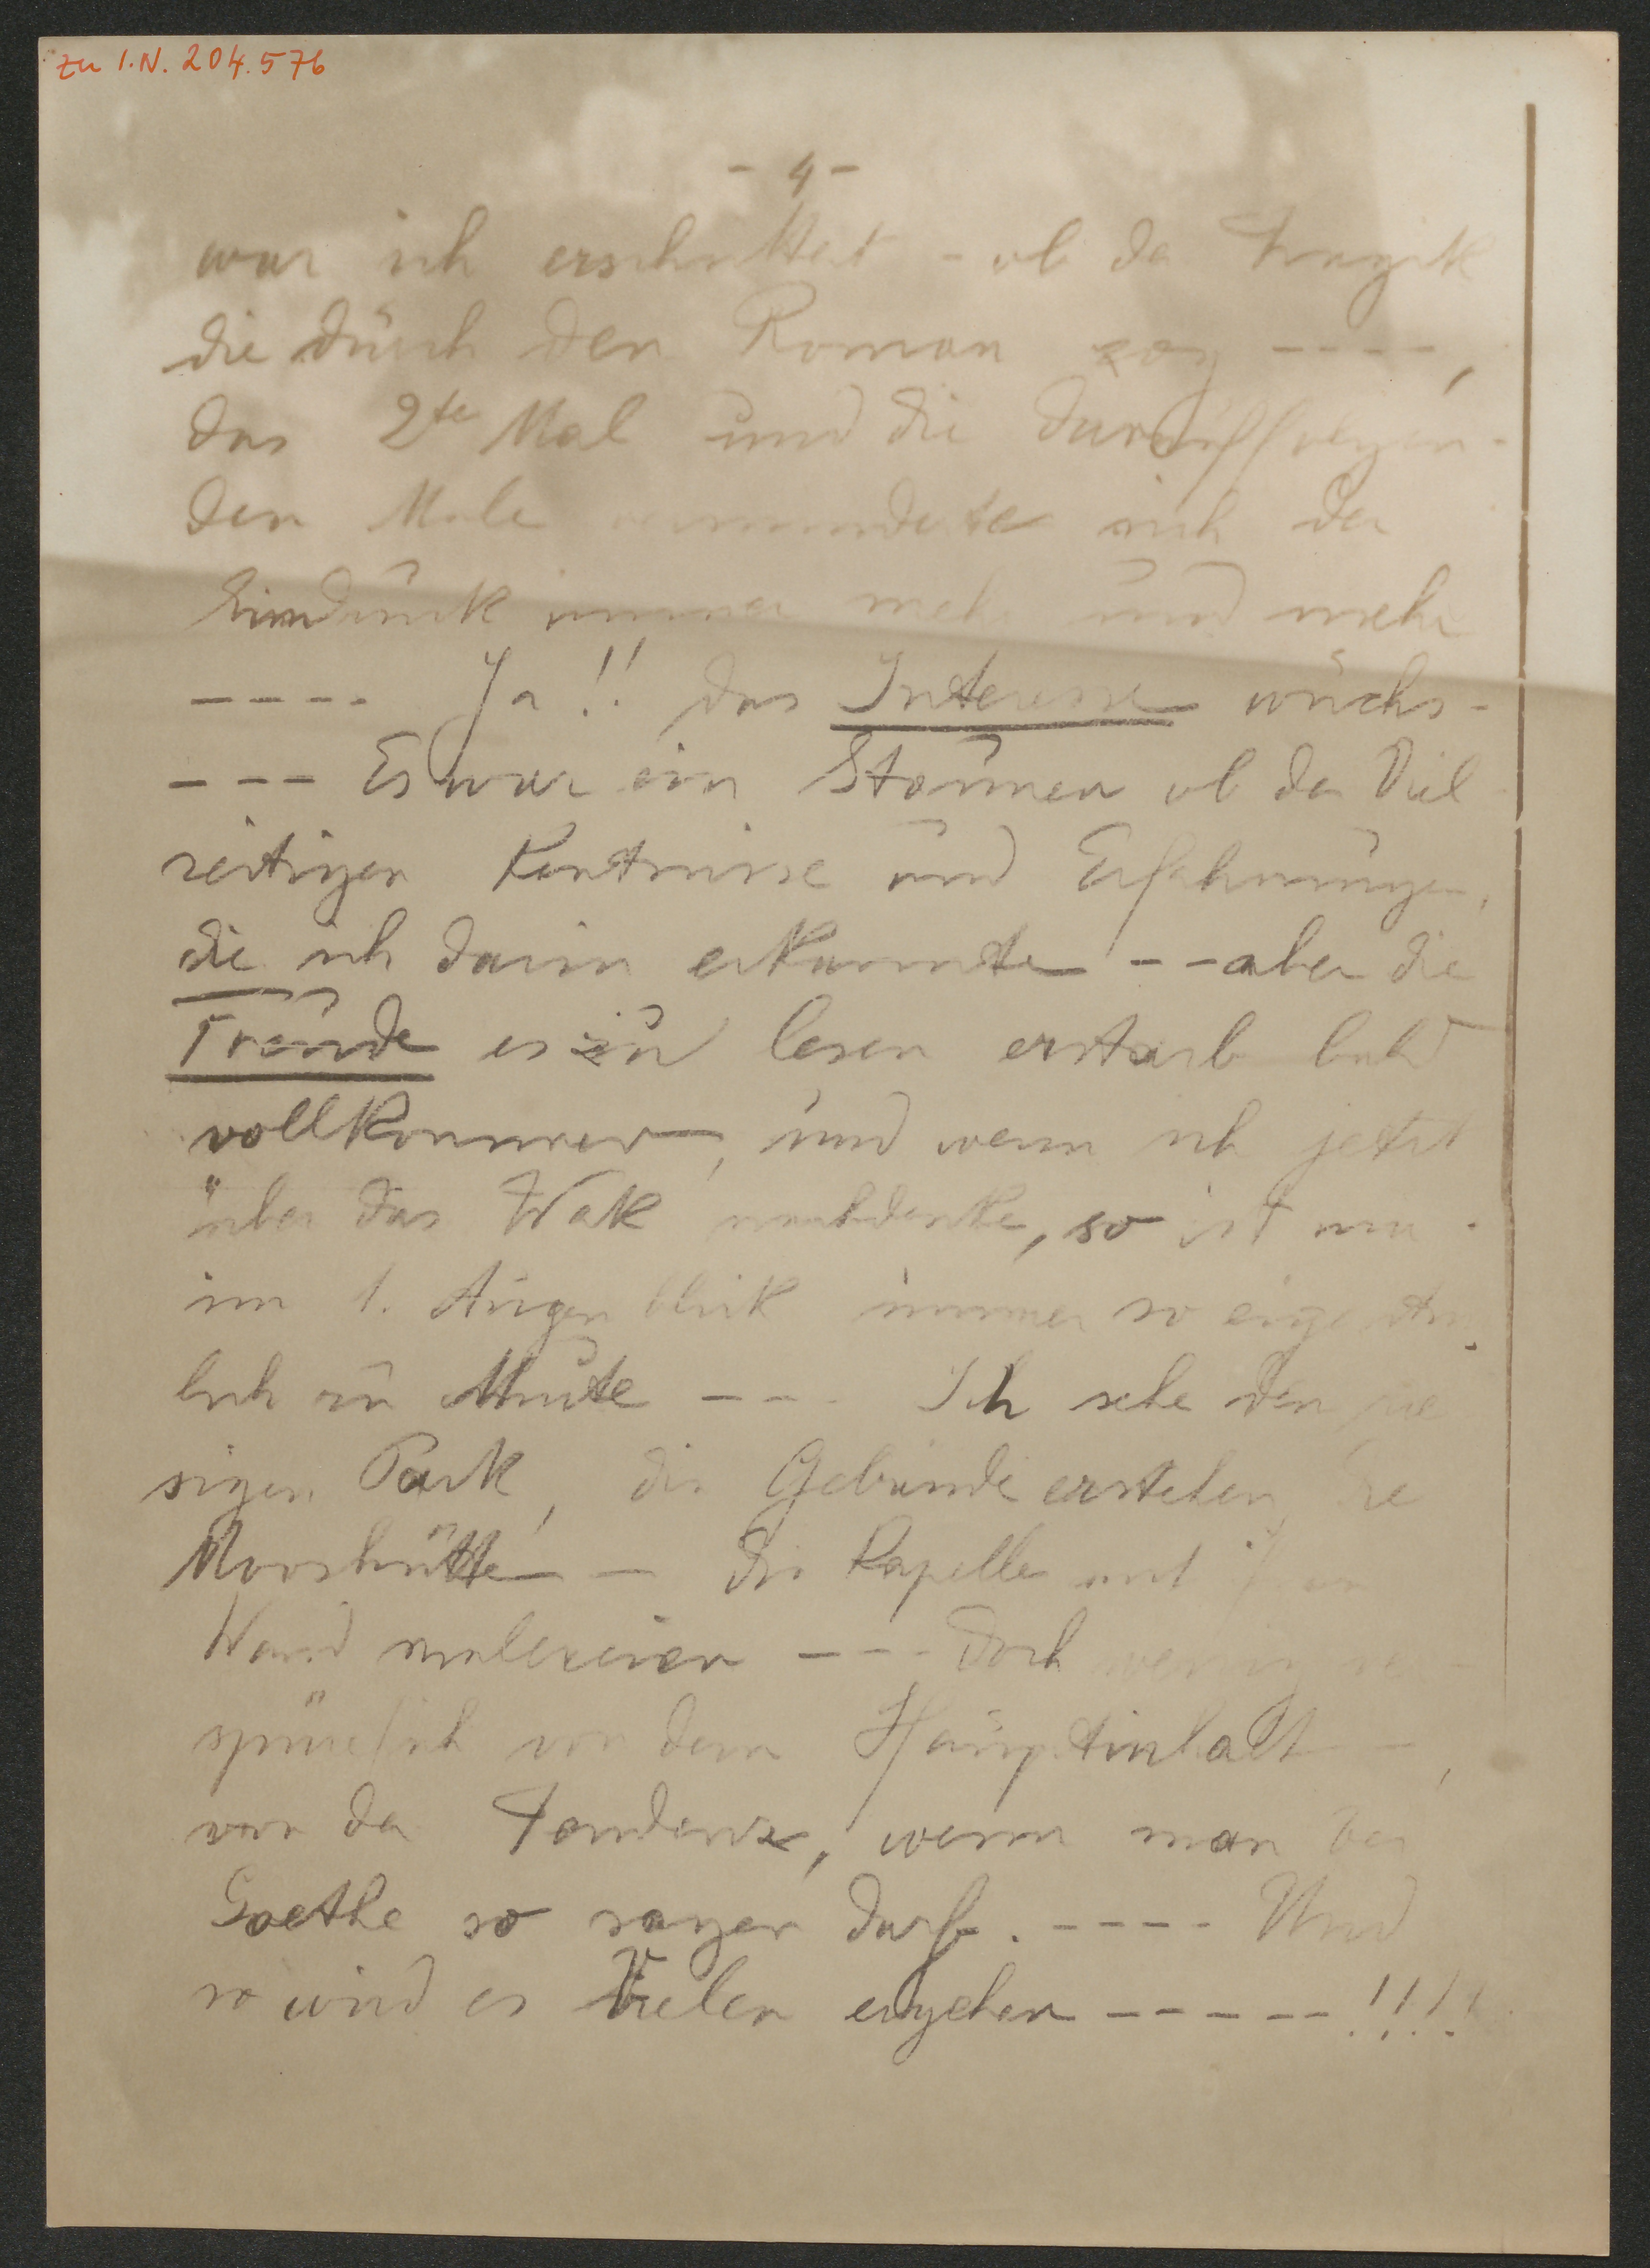 zu I.N. 204.576
- 4 -
war ich erschüttert - ob der Tragik
die durch den Roman zog ----,
das 2te Mal und die darauffolgen-
den Male verminderte sich der
Eindruck immer mehr und mehr
---- Ja!! das Interesse wuchs -
--- Es war ein Staunen ob der Viel
seitigen Kentnisse und Erfahrungen,
die ich darin erkannte -- aber die
Freude es zu lesen erstarb bald
vollkommen, und wenn ich jetzt
über das Werk nachdenke, so ist mir
im 1. Augenblick immer so eigentüm
lich zu Mute --- Ich sehe den rie
sigen Park, die Gebäude erstehen, die
Mooshütte - - die Kapelle mit ihren
Wandmalereien --- Doch wenig ver-
spüre ich von dem Hauptinhalt -,
von der Tendenz, wenn man bei
Goethe so sagen darf. ---- Und
so wird es Vielen ergehen -----!!!!